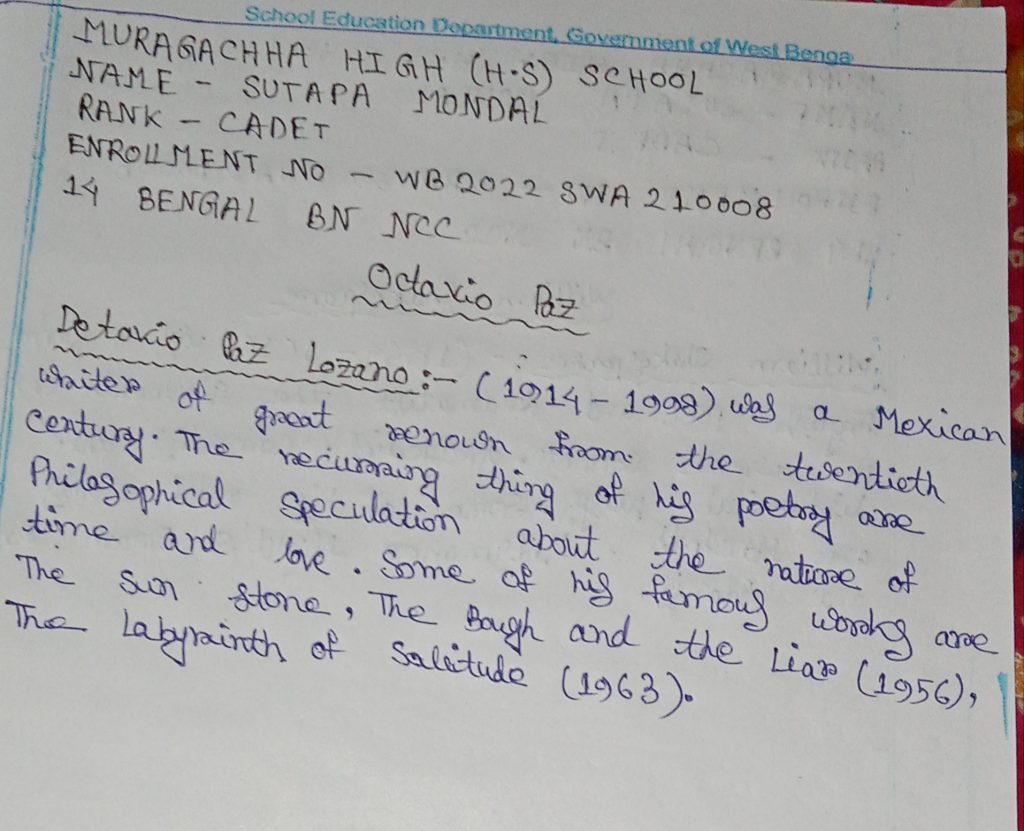 School Education Department, Government of West Benga
MURAGACHHA HIGH (H.S) SCHOOL
NAME - SUTAPA MONDAL
RANK - CADET
ENROLLMENT NO - WB 2022 SWA 210008
14 BENGAL BN NCC
Octavio Paz
Detavio Paz Lozano :- (1914 - 1998) was a Mexican
writer of great renown from the twentieth
century. The recurring thing of his poetry are
Philosophical speculation about the nature of
time and love. Some of his famous works are
The Sun stone, The Bough and the Liar (1956),
The Labyrainth of Salitude (1963).